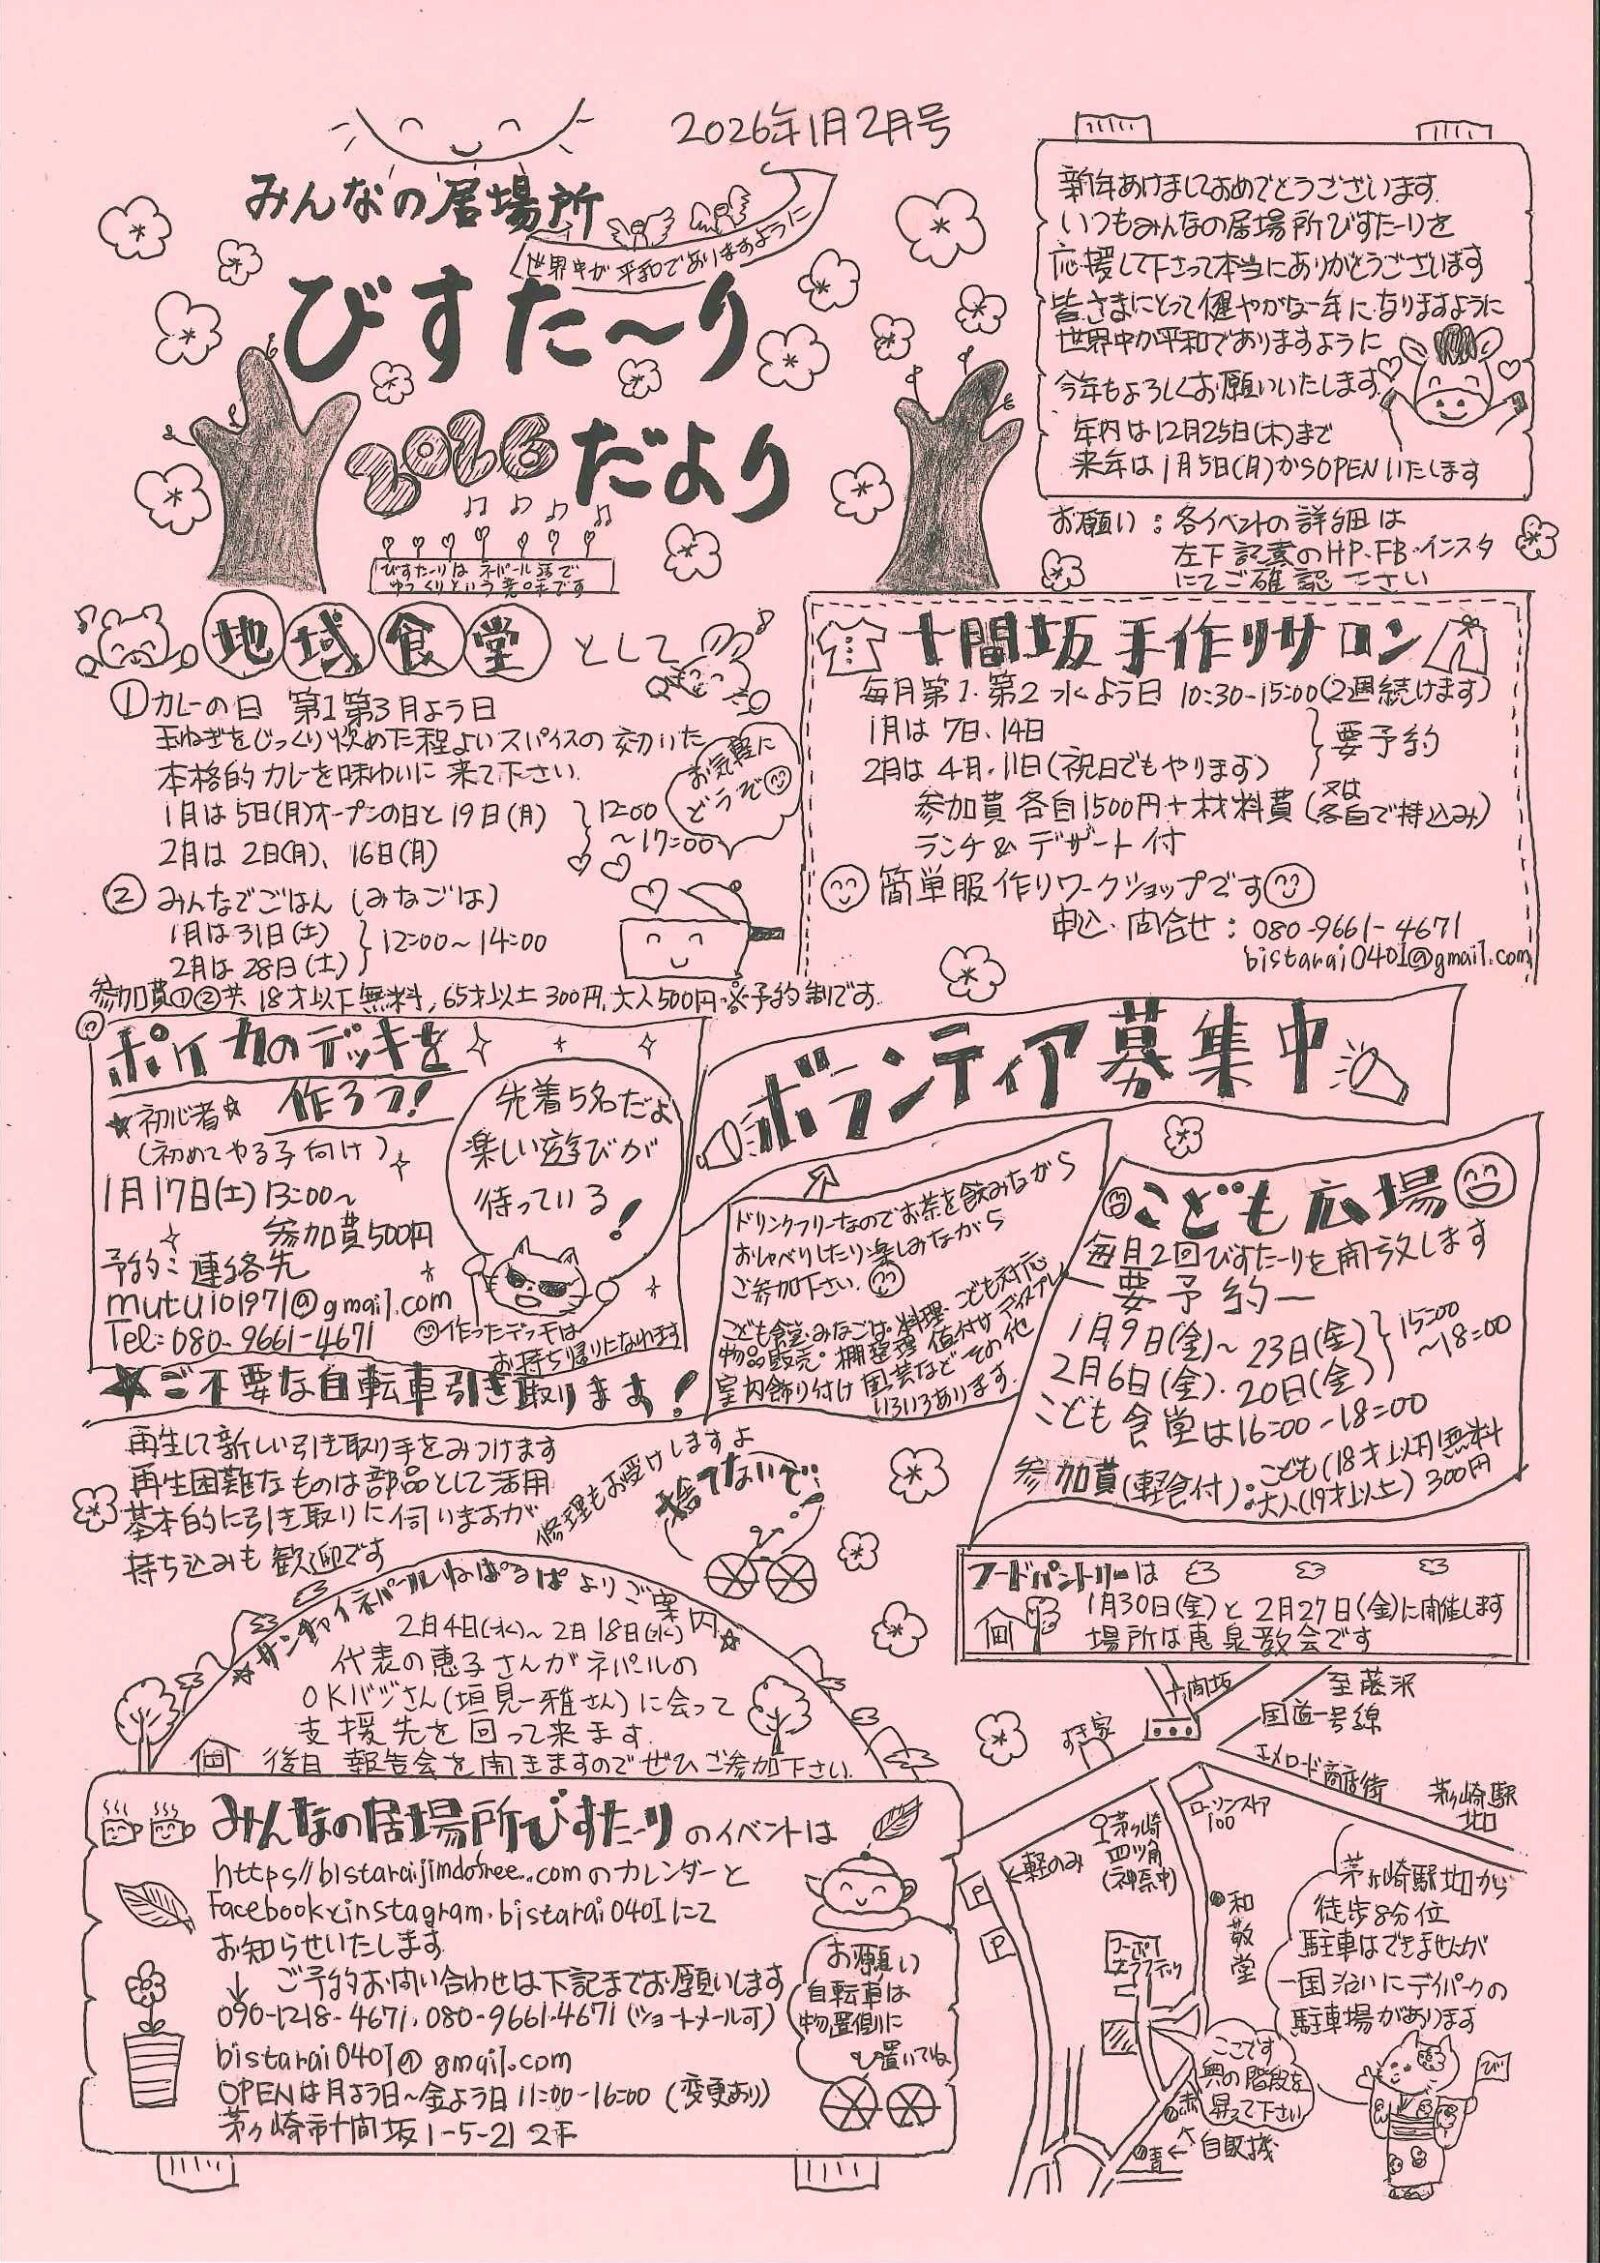 2026年1月2月号
みんなの居場所
世界中が平和でありますように
びすた〜り
2026 だより
びすた〜りは ネパール語で
ゆっくりという意味です
新年あけましておめでとうございます.
いつもみんなの居場所びすた〜りを
応援して下さって本当にありがとうございます
皆さまにとって健やかな一年になりますように
世界中が平和でありますように
今年もよろしくお願いいたします.
年内は12月25日(木)まで
来年は1月5日(月)からOPENいたします
お願い:各イベントの詳細は
左下記載のHP・FB・インスタ
にてご確認下さい
地域食堂 として
①カレーの日 第1第3月よう日
玉ねぎをじっくり炒めた程よいスパイスの効いた
本格的カレーを味わいに来て下さい.
1月は5日(月)オープンの日と19日(月)
2月は2日(月)、16日(月)
12:00
〜17:00
お気軽に
どうぞ
②みんなでごはん(みなごは)
1月は31日(土)
2月は28日(土)
12:00〜14:00
参加費①②共 18才以下無料,65才以上300円,大人500円・※予約制です.
十間坂手作りサロン
毎月第1.第2水よう日 10:30-15:00(2週続けます)
1月は7日、14日
2月は4日.11日(祝日でもやります)
要予約
参加費 各自1500円+材料費(又は各自で持込み)
ランチ&デザート付
簡単服作りワークショップです
申込・問合せ:080-9661-4671
bistarai0401@gmail.com
ポケカのデッキを
作ろう!
★初心者☆
(初めてやる子向け)
1月17日(土)13:00〜
参加費500円
予約:連絡先
mutui01971@gmail.com
Tel:080-9661-4671
先着5名だよ
楽しい遊びが
待っている!
作ったデッキは
お持ち帰りになれます
ボランティア募集中
ドリンクフリーなのでお茶を飲みながら
おしゃべりしたり楽しみながら
ご参加下さい.
こども食堂・みなごは・料理・こども対応
物品販売・棚整理・値付け・ディスプレイ
室内飾り付け 園芸など その他
いろいろあります.
こども広場
毎月2回びすた〜りを開放します
ー要予約ー
1月9日(金)〜23日(金)
2月6日(金).20日(金)
15:00
〜18:00
こども食堂は16:00-18:00
参加費(軽食付):こども(18才以下)無料
大人(19才以上)300円
★ご不要な自転車引き取ります!
再生して新しい引き取り手をみつけます
再生困難なものは部品として活用
基本的に引き取りに伺いますが
持ち込みも歓迎です
修理もお受けしますよ
捨てないで
フードパントリーは
1月30日(金)と2月27日(金)に開催します
場所は恵泉教会です
★サンチャイネパールねぱるぱよりご案内★
2月4日(水)〜2月18日(水)
代表の恵子さんがネパールの
OKバジさん(垣見一雅さん)に会って
支援先を回って来ます.
後日 報告会を開きますのでぜひご参加下さい.
みんなの居場所びすた〜りのイベントは
https//bistaraijimdofree..comのカレンダーと
Facebookとinstagram.bistarai0401にて
お知らせいたします.
↓ ご予約お問い合わせは下記までお願いします
090-1218-4671,080-9661-4671(ショートメール可)
bistarai0401@gmail.com
OPENは月よう日〜金よう日11:00-16:00(変更あり)
茅ヶ崎市十間坂1-5-21 2F
お願い
自転車は
物置側に
置いてね
十間坂
至藤沢
国道一号線
すき家
エメロード商店街
茅ヶ崎駅
北口
ローソンストア
100
茅ヶ崎
四ツ角
(神奈中)
軽のみ
P
P
和敬堂
茅ヶ崎駅北口から
徒歩8分位
駐車はできませんが
一国沿いにデイパークの
駐車場があります
ここです
奥の階段を
昇って下さい
赤
青
自販機
び